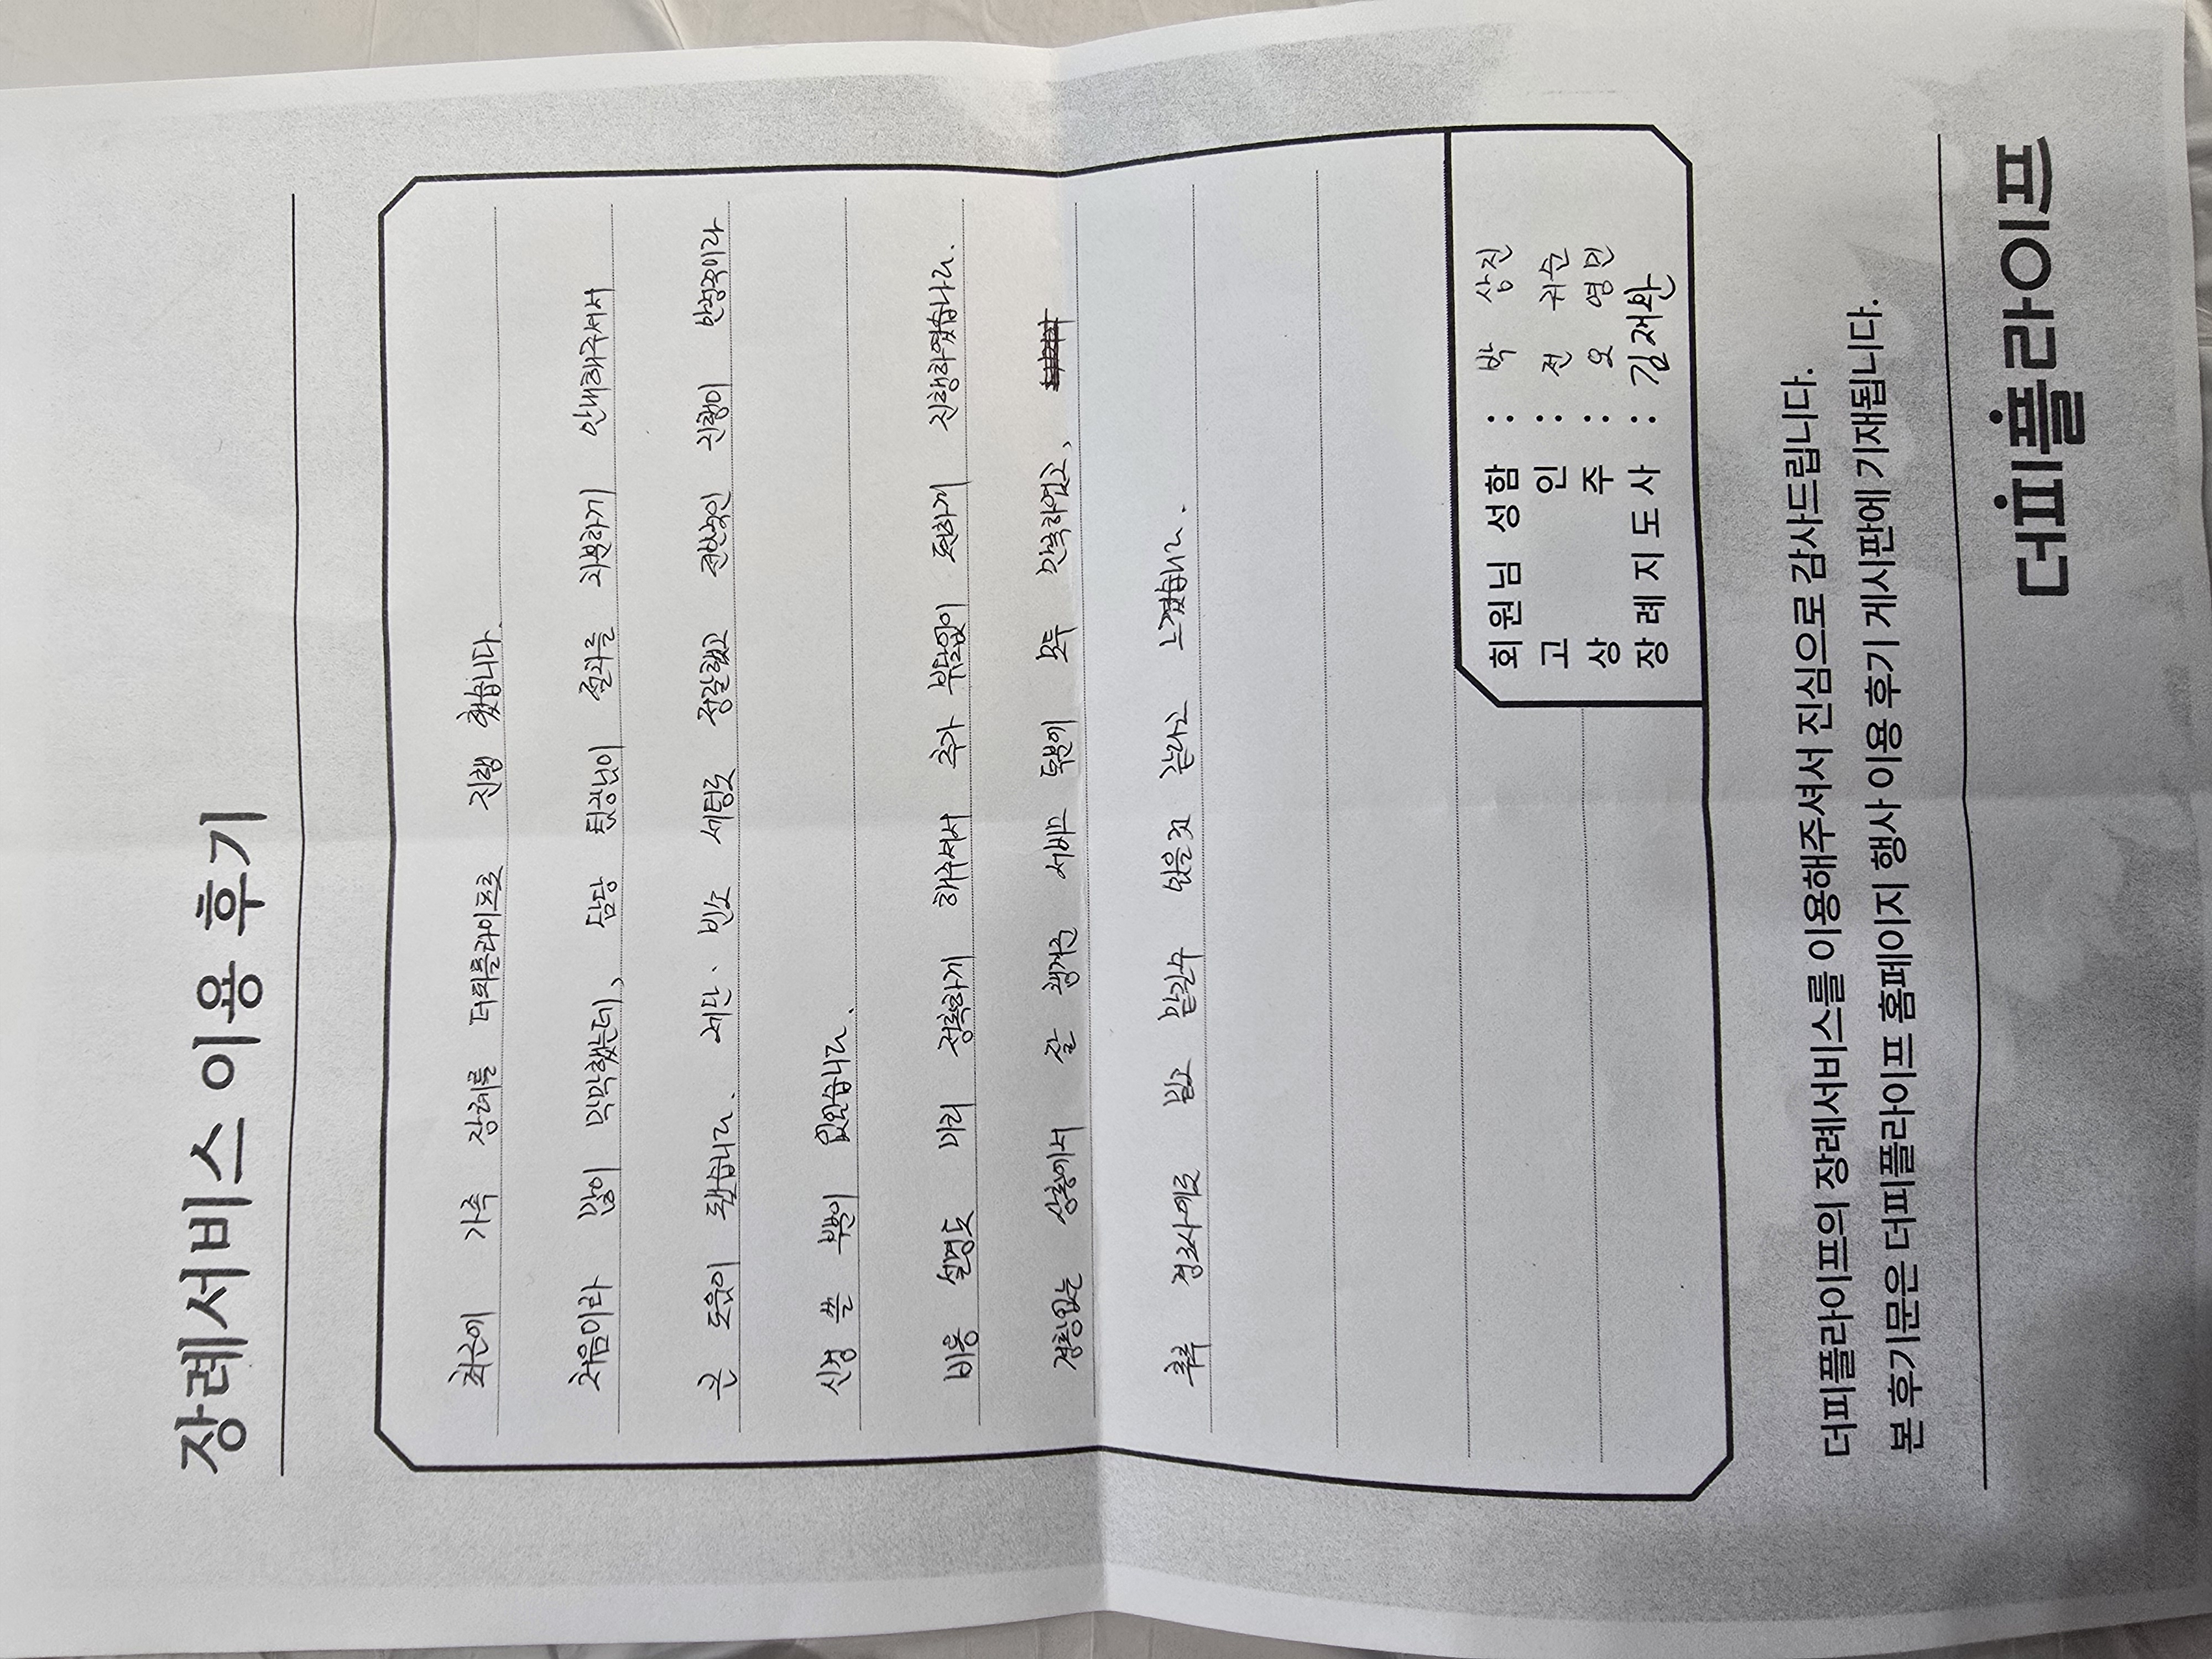 장례서비스 이용 후기
최근에 가족 장례를 더피플라이프로 진행 했습니다.
처음이라 많이 막막했는데, 담당 팀장님이 절차를 차분하게 안내해주셔서
큰 도움이 됐습니다. 제단. 빈소 세팅도 깔끔했고 전반적인 진행이 안정적이라
신경 쓸 부분이 없었습니다.
비용 설명도 미리 정확하게 해주셔서 추가 부담없이 편하게 진행하였습니다.
경황없는 상황에서 잘 챙겨준 서비스 덕분에 모두 만족하였고,
추후 경조사에도 믿고 맡길수 있을것 같다고 느꼈습니다.
회원님 성함 : 박 상진
고 인 : 전 귀순
상 주 : 오 영민
장례지도사 : 김재완
더피플라이프의 장례서비스를 이용해주셔서 진심으로 감사드립니다.
본 후기문은 더피플라이프 홈페이지 행사 이용 후기 게시판에 기재됩니다.
더피플라이프